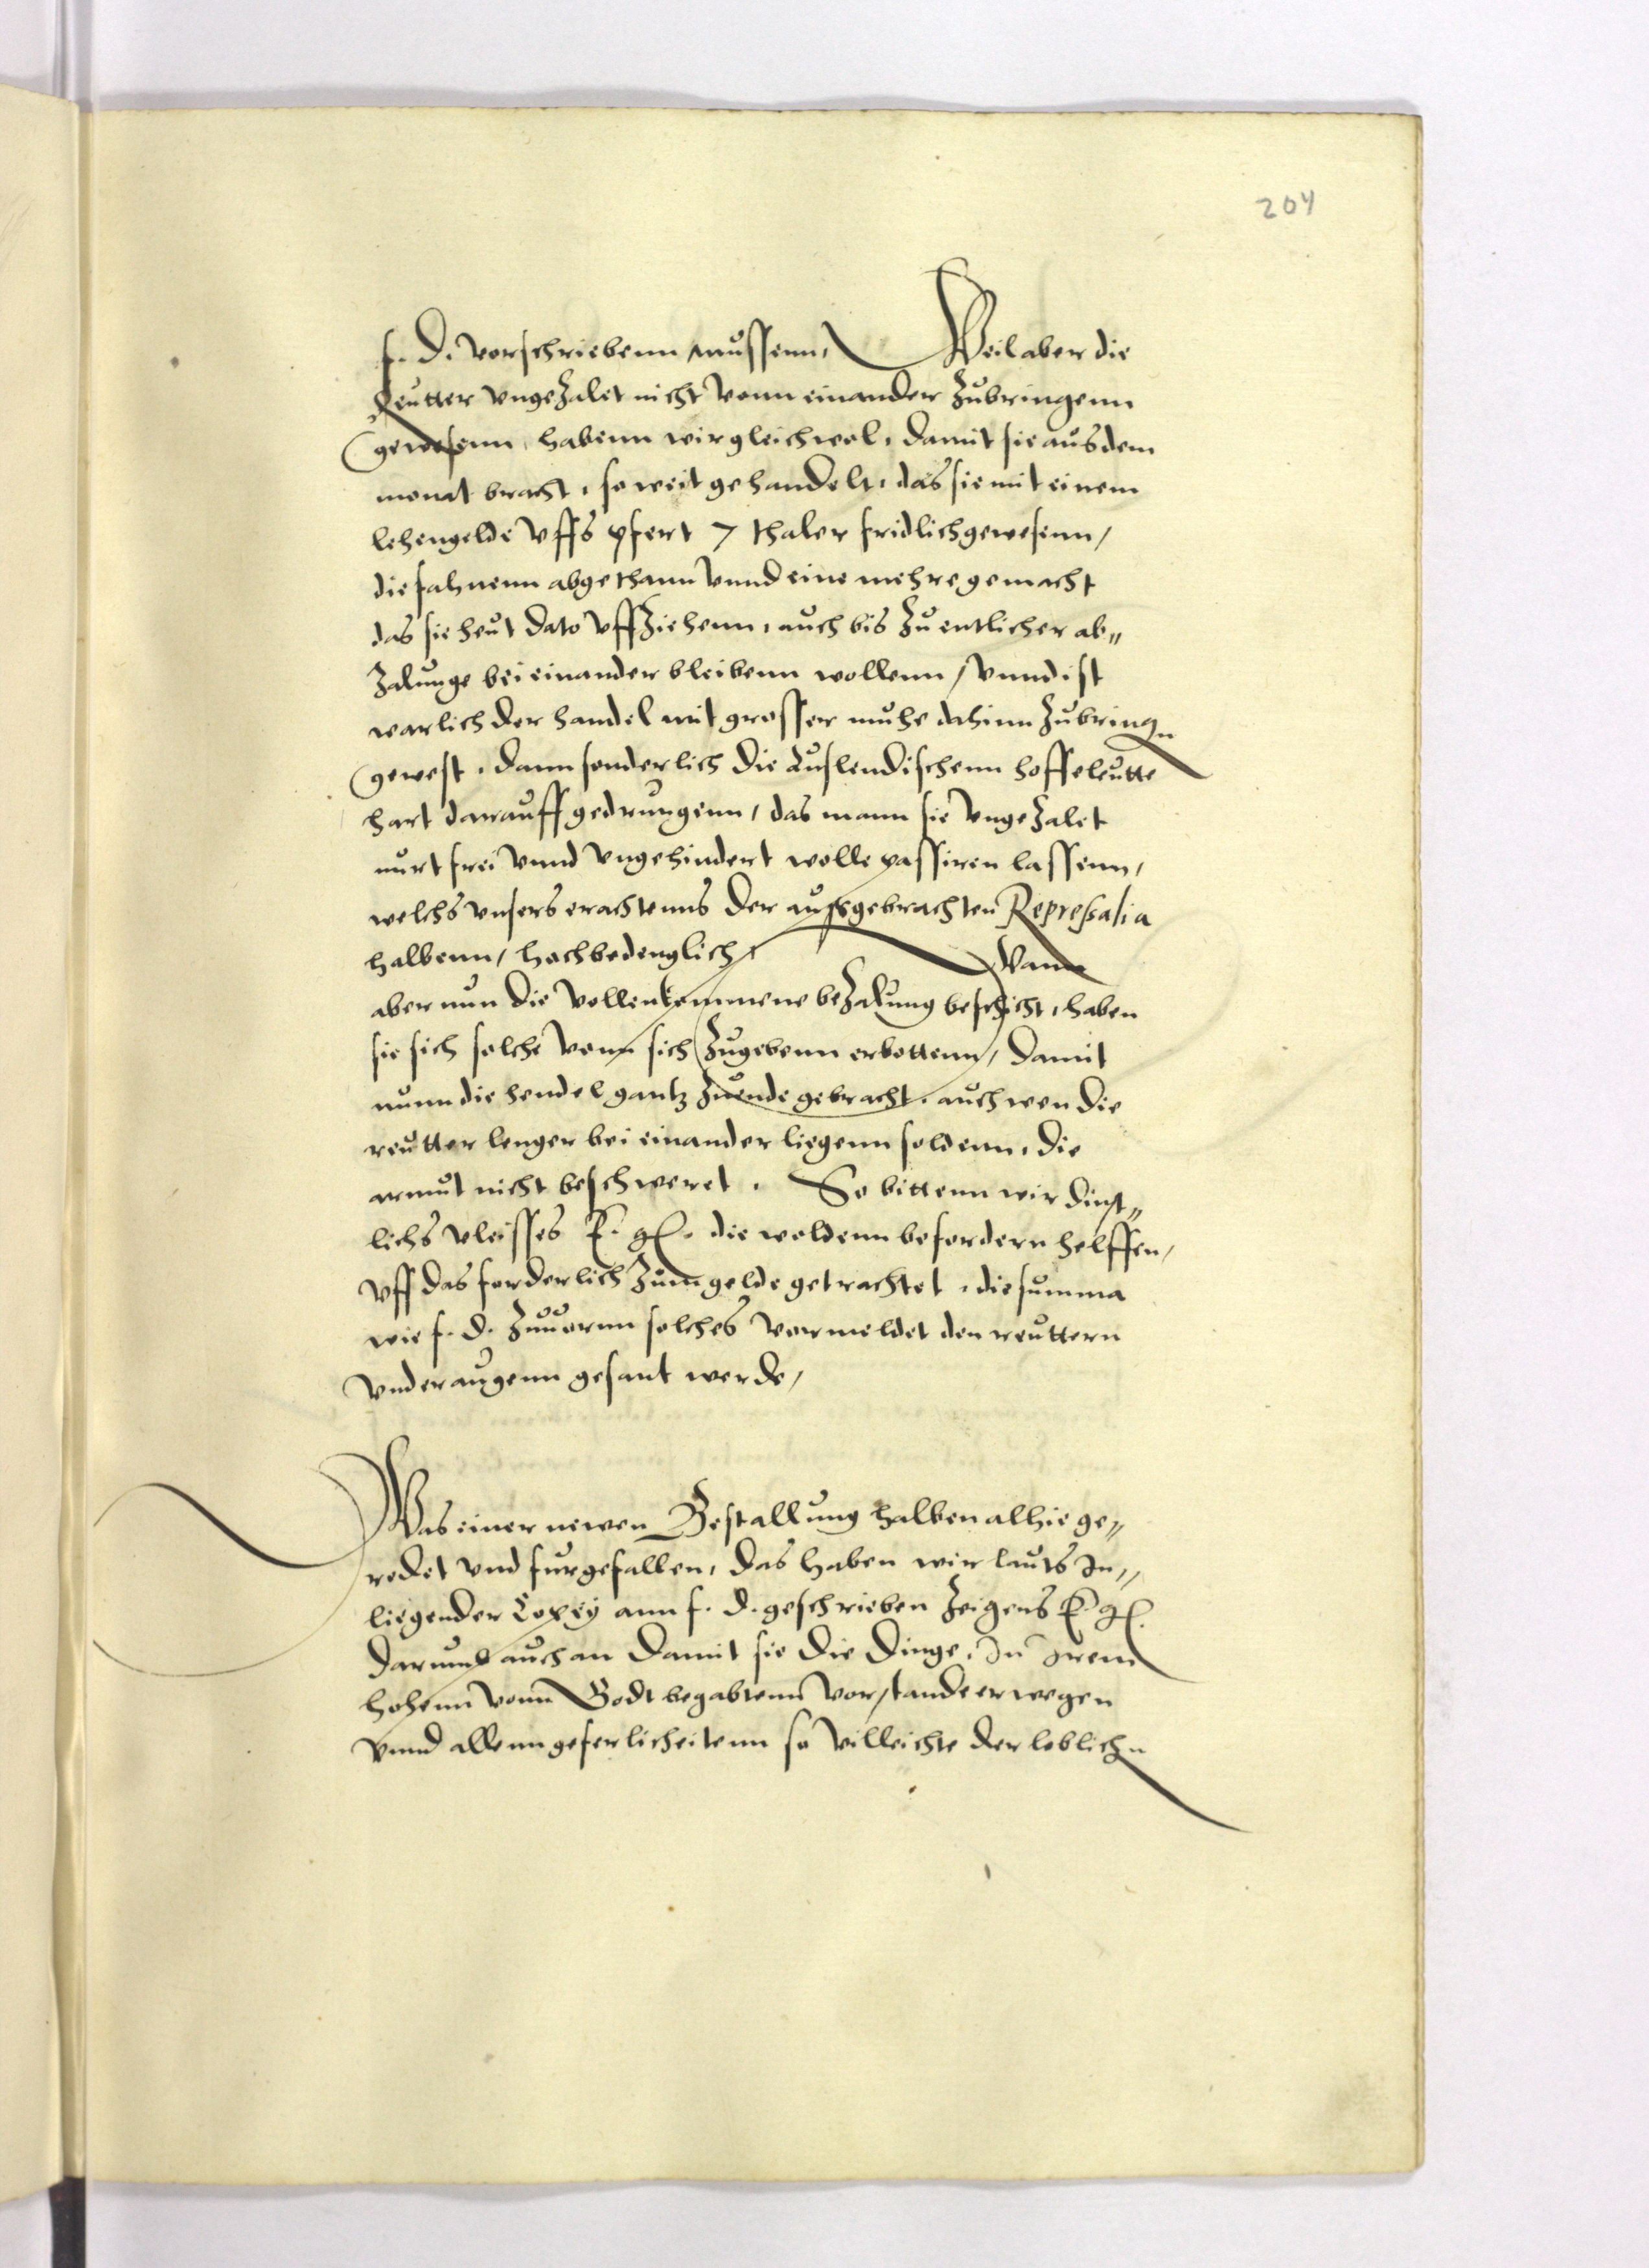 204
f. D. vorschriebenn mussenn, Weil aber die
Reutter vngezalet nicht vonn einander zubringenn
gewesenn, habenn wir gleichwol, damit sie aus dem
monat bracht, so weit gehandelt, das sie mit einem
lehengelde vffs pfert 7 thaler fridlich gewesenn,
die fahnenn abgethann vnnd eine mehre gemacht
das sie heut dato vffziehenn, auch bis zu entlicher ab„
zalunge bei einander bleibenn wollenn, vnnd ist
warlich der handel mit grosser muhe dahinn zubringen
gewest, dann sonderlich die Auslendischenn hoffeleutte
hart darauff gedrungenn, das mann sie vngezalet
nurt frei vnnd vngehindert wolle passiren lassenn,
welchs vnsers erachtenns der aussgebrachten Represalia
halbenn, hochbedenglich, Wann
aber nun die vollenkommene bezalung beschicht, haben
sie sich solche vonn sich zugebenn erbottenn, Damit
nunn die hendel gantz zuende gebracht, auch wen die
reutter lenger bei einander liegenn soldenn, die
armut nicht beschweret. So bittenn wir dinst„
lichs vleisses E. g. die woldenn befordern helffen,
vff das forderlich zum gelde getrachtet, die summa
wie f. D. zuuornn solches vormeldet den reuttern
vnder augenn gesant werde,
Was einer newen Bestallung halben alhie ge„
redet vnd furgefallen, das haben wir lauts In„
liegender Copey ann f. D. geschrieben zeigens E. g.
darumb auch an damit sie die dinge, In Irem
hohenn vonn Godt begabtenn vorstande erwegen
vnnd allenn geferlicheitenn so villeichte der loblichen